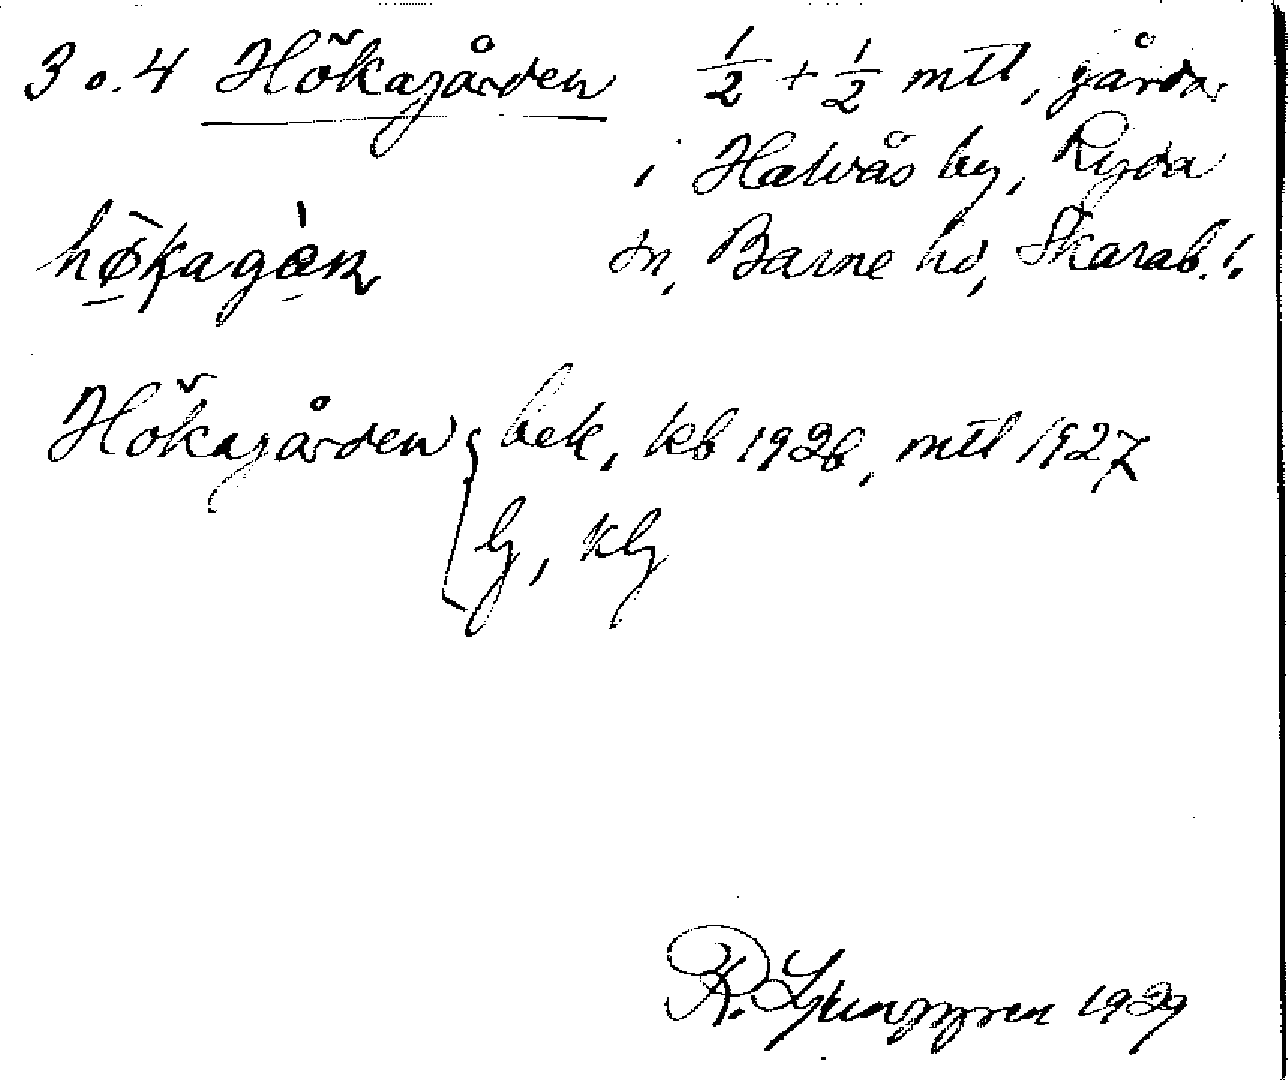 3 o. 4 Hökagården ½ + ½ mtl, gårdar
i Halvås by, Ryda
hø̀kagàn sn, Barne hd, Skarab. l.
Hökagården bek, kb 1926, mtl 1927
G, KG
R. Ljunggren 1929